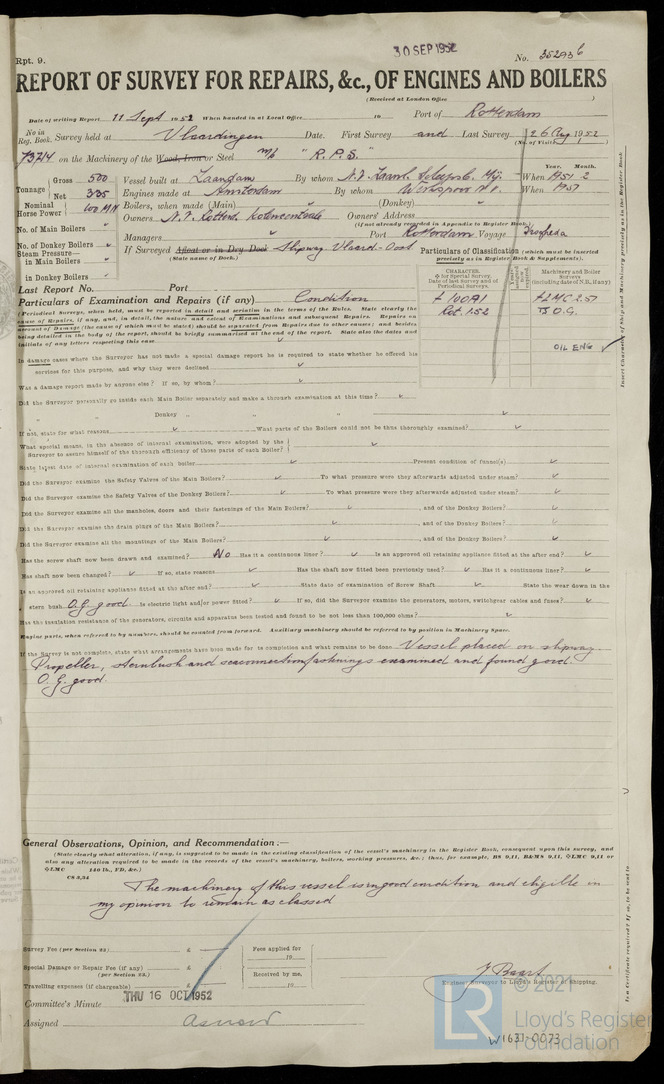 30 SEP 1952
Rpt. 9.
No. 35293 6
REPORT OF SURVEY FOR REPAIRS, &c., OF ENGINES AND BOILERS
(Received at London Office )
Date of writing Report 11 Sept 1952 When handed in at Local Office 19 Port of Rotterdam
No in Reg. Book. Survey held at Vlaardingen Date. First Survey and Last Survey 26 Aug 1952
(No. of Visits 1 )
73714 on the Machinery of the Wood, Iron or Steel m/s "R.P.S."
Tonnage Gross 500 Net 335
Vessel built at Zaandam By whom When 1951 2
Year. Month.
Engines made at Amsterdam By whom Werkspoor N.V. When 1951
Nominal Horse Power 100 MN
Boilers, when made (Main) (Donkey)
No. of Main Boilers
Owners N.V. Rotterd. Kolencentrale Owners' Address
(if not already recorded in Appendix to Register Book.)
No. of Donkey Boilers
Managers Port Rotterdam Voyage
Steam Pressure— in Main Boilers
in Donkey Boilers
If Surveyed Afloat or in Dry Dock Slipway Vlaard-Oost
(State name of Dock.)
Particulars of Classification (which must be inserted precisely as in Register Book & Supplements).
CHARACTER. for Special Survey. Date of last Survey and of Periodical Surveys.
Machinery and Boiler Surveys (including date of N.B., if any)
+100A1 +LMC 2.51
Rot. 1.52 TS O.G.
OIL ENG
Last Report No. Port
Particulars of Examination and Repairs (if any) Condition
(Periodical Surveys, when held, must be reported in detail and seriatim in the terms of the Rules. State clearly the cause of Repairs, if any, and, in detail, the nature and extent of Examinations and subsequent Repairs. Repairs on account of Damage (the cause of which must be stated) should be separated from Repairs due to other causes; and besides being detailed in the body of the report, should be briefly summarised at the end of the report. State also the dates and initials of any letters respecting this case.
In damage cases where the Surveyor has not made a special damage report he is required to state whether he offered his services for this purpose, and why they were declined
Was a damage report made by anyone else? If so, by whom?
Did the Surveyor personally go inside each Main Boiler separately and make a thorough examination at this time?
" " Donkey " " "
If not, state for what reasons What parts of the Boilers could not be thus thoroughly examined?
What special means, in the absence of internal examination, were adopted by the Surveyor to assure himself of the thorough efficiency of those parts of each Boiler?
State latest date of internal examination of each boiler Present condition of funnel(s)
Did the Surveyor examine the Safety Valves of the Main Boilers? To what pressure were they afterwards adjusted under steam?
Did the Surveyor examine the Safety Valves of the Donkey Boilers? To what pressure were they afterwards adjusted under steam?
Did the Surveyor examine all the manholes, doors and their fastenings of the Main Boilers? , and of the Donkey Boilers?
Did the Surveyor examine the drain plugs of the Main Boilers? , and of the Donkey Boilers?
Did the Surveyor examine all the mountings of the Main Boilers? , and of the Donkey Boilers?
Has the screw shaft now been drawn and examined? No Has it a continuous liner? Is an approved oil retaining appliance fitted at the after end?
Has shaft now been changed? If so, state reasons Has the shaft now fitted been previously used? Has it a continuous liner?
Is an approved oil retaining appliance fitted at the after end? State date of examination of Screw Shaft State the wear down in the
stern bush O.G. good. Is electric light and/or power fitted? If so, did the Surveyor examine the generators, motors, switchgear cables and fuses?
Has the insulation resistance of the generators, circuits and apparatus been tested and found to be not less than 100,000 ohms?
Engine parts, when referred to by numbers, should be counted from forward. Auxiliary machinery should be referred to by position in Machinery Space.
If the Survey is not complete, state what arrangements have been made for its completion and what remains to be done Vessel placed on slipway.
Propeller, sternbush and seaconnection fastenings examined and found good.
O.G. good.
General Observations, Opinion, and Recommendation:—
(State clearly what alteration, if any, is suggested to be made in the existing classification of the vessel's machinery in the Register Book, consequent upon this survey, and also any alteration required to be made in the records of the vessel's machinery, boilers, working pressures, &c.; thus, for example, BS 9,11, B&MS 9,11, LMC 9,11 or LMC 140 lb., FD, &c.)
CS 3,34
The machinery of this vessel is in good condition and eligible in
my opinion to remain as classed
Survey Fee (per Section 23) £
Special Damage or Repair Fee (if any) (per Section 23.) £
Travelling expenses (if chargeable) £
Fees applied for 19
Received by me, 19
Engineer Surveyor to Lloyd's Register of Shipping.
Committee's Minute THU 16 OCT 1952
Assigned as now
Insert Character of Ship and Machinery precisely as in the Register Book
Is a Certificate required? If so, to be sent to
LR © 2021
Lloyd's Register
Foundation
W1631-0073